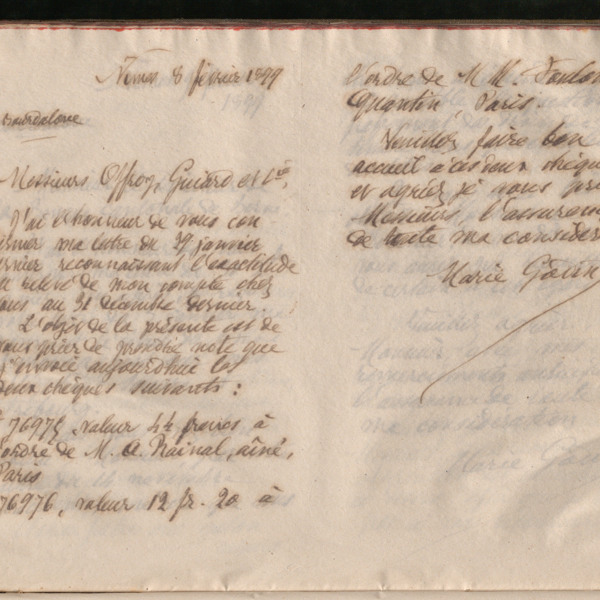 Nîmes 8 février 1899
Bourdaloue
Messieurs Offroy, Guiard et Cie,
J'ai l'honneur de vous con-
firmer ma lettre du 29 janvier
dernier reconnaissant l'exactitude
du relevé de mon compte chez
vous au 31 décembre dernier.
L'objet de la présente est de
vous prier de prendre note que
j'envoie aujourd'hui les
deux chèques suivants :
76975, valeur 44 francs à
l'ordre de M. A. Rainal, aîné,
Paris
76976, valeur 12 fr. 20 à
l'ordre de M.M.
Quantin, Paris.
Veuillez faire bon
accueil à ces deux chèques
et agréez je vous prie
Messieurs, l'assurance
de toute ma considér
Marie Gouin